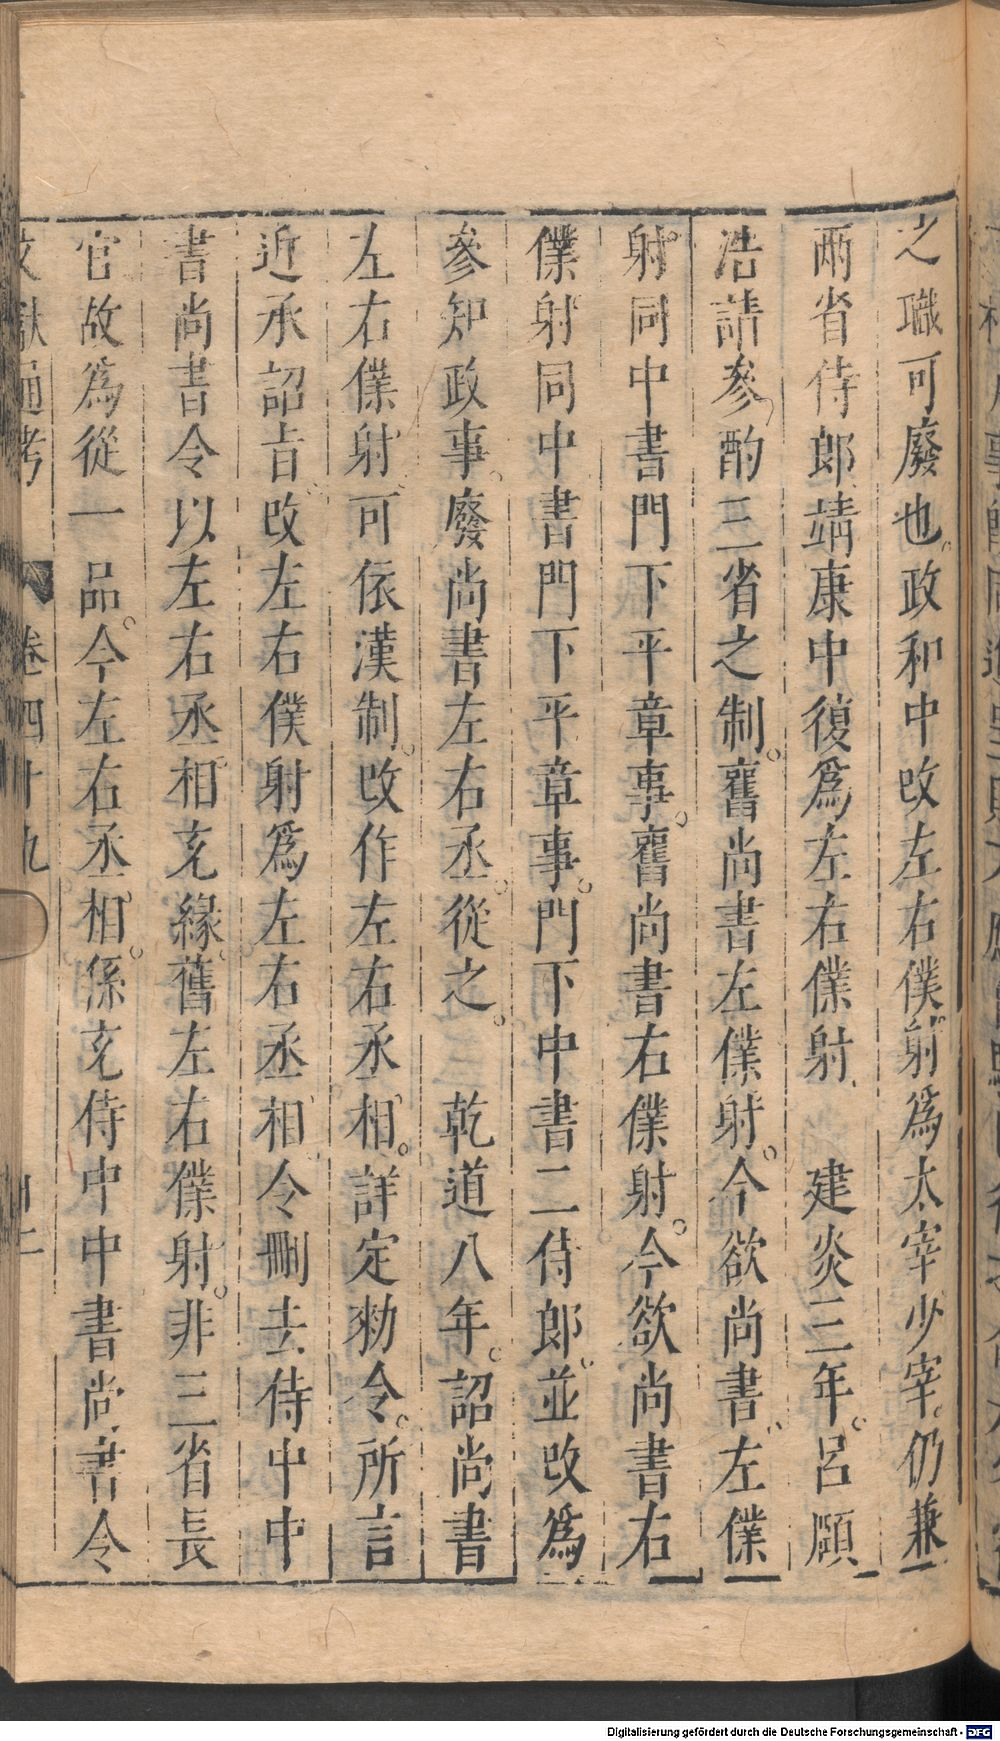 之職可廢也政和中改左右僕射爲太宰少宰仍兼
兩省侍郎靖康中復爲左右僕射　建炎三年呂頤
浩請參酌三省之制舊尚書左僕射今欲尚書左僕
射同中書門下平章事舊尚書右僕射今欲尚書右
僕射同中書門下平章事門下中書二侍郎並改爲
參知政事廢尚書左右丞從之　乾道八年詔尚書
左右僕射可依漢制改作左右丞相詳定勑令所言
近承詔旨改左右僕射爲左右丞相令刪去侍中中
書尚書令以左右丞相充緣舊左右僕射非三省長
官故爲從一品今左右丞相係充侍中中書尚書令
文獻通考　卷四十九
Digitalisierung gefördert durch die Deutsche Forschungsgemeinschaft - DFG